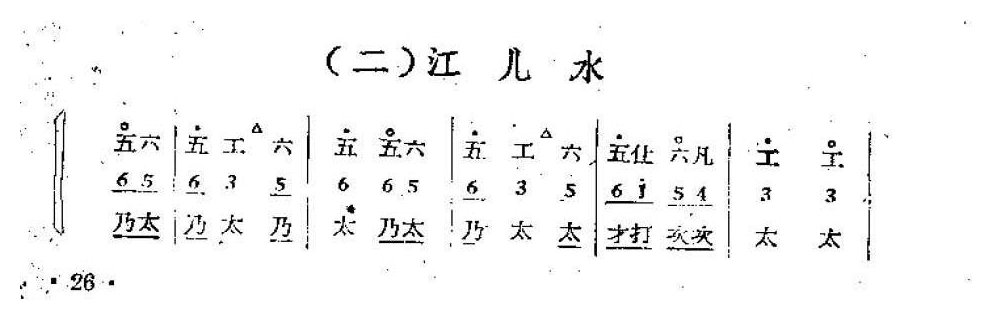 (二)江儿水
五六 | 五工六 | 五五六 | 五工六 | 五仩六凡 | 工工
6 5 | 6 3 5 | 6 6 5 | 6 3 5 | 6 i 5 4 | 3 3
乃太 | 乃太乃 | 太乃太 | 乃太太 | 才打次次 | 太太
·26·